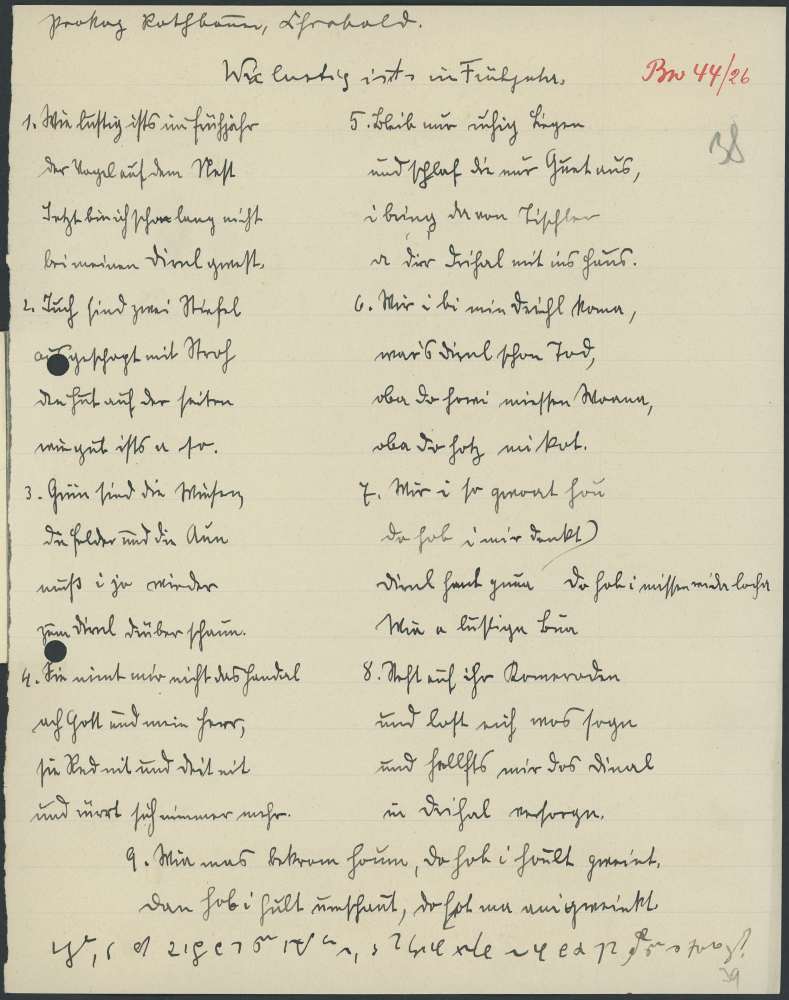 Wie lustig ists im Frühjahr.
Bw 44/26
38
1. Wie lustig ists im Frühjahr
der Vogel auf dem Nest
Jetzt bin ich schon lang nicht
bei meinen Dirnl gwest.
2. Juch sind zwei Stiefel
ausgeschopt mit Stroh
den Hut auf der seiten
wie gut ists a so.
3. Grün sind die Wiesen
die Felder und die Aun
muß i jo wieder
zum Dirnl drüber schaun.
4. Sie nimt mir nicht das Handal
ach Gott und mein Herr,
sie Red nit und deit nit
und rürt sich nimmer mehr.
5. Bleib nur ruhig liegen
und schlaf die nur Guet aus,
i bring da von Tischler
a dir Drihal mit ins Haus.
6. Wir i bi min Drichl koma,
war's Dirnl schon Tod,
oba do howi miessen Woana,
oba do hotz mi kot.
7. Wir i so gwoat hou
do hob i mir denkt
Dirnl hent gnua do hob i missen wida locha
Wia a lustiga Bua
8. Steht auf ihr Komeroden
und lost eich wos sogn
und hellfts mir dos Dirnal
in Drihal versorgn.
9. Wia mas bekrom houm, do hob i hoult gweint,
dan hob i hült umschaut, do hot ma ani gwinkt.
39